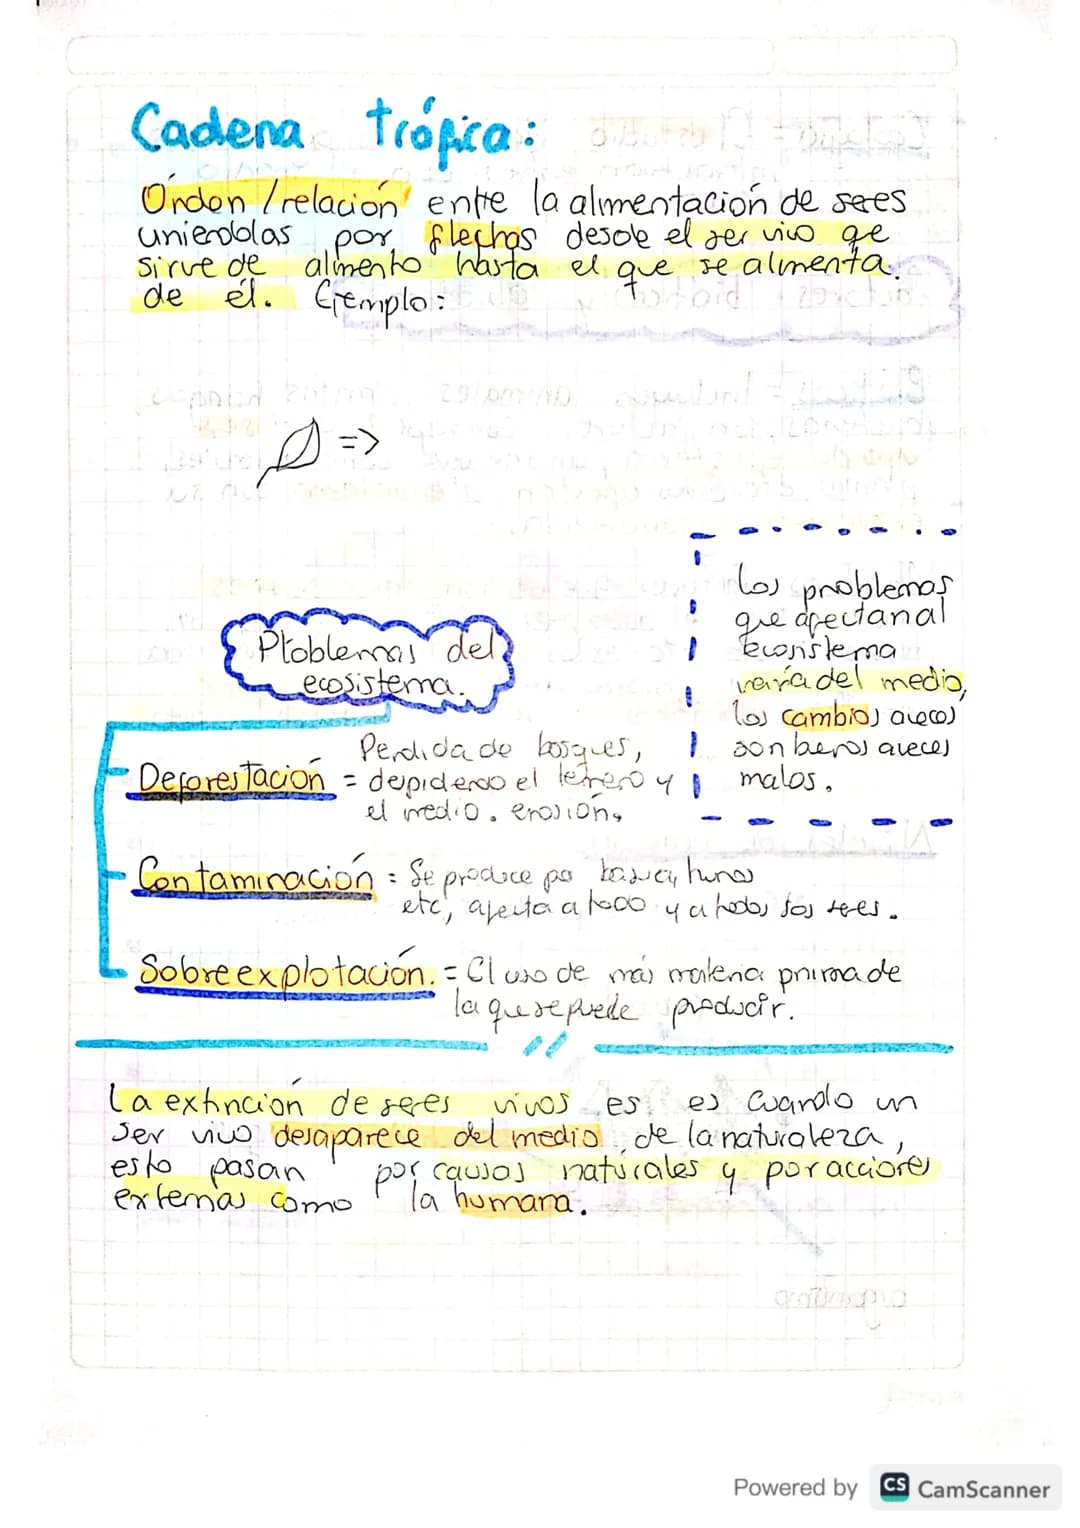 Cadena trófica:
Orden / relación entre la alimentación de seres
uniendolas por flechas desde el ser vivo qe
sirve de alimento hasta el que se alimenta
de él. Ejemplo:
=>
Problemas del
ecosistema.
Los problemas
que afectan al
ecosistema
varía del medio,
los cambios aveces
son beros aveces
malos.
Perdida de bosques,
Deforestación = despidendo el terreno y
el medio. erosión.
Contaminación = Se produce por basura, humos
etc, afecta a todo y a todos los seres.
Sobreexplotación. = El uso de más materia prima de
la que se puede producir.
La extinción de seres vivos es es cuando un
ser vivo desaparece del medio de la naturaleza,
esto pasan por causas naturales y por acciones
externas como la humana.
Powered by CS CamScanner